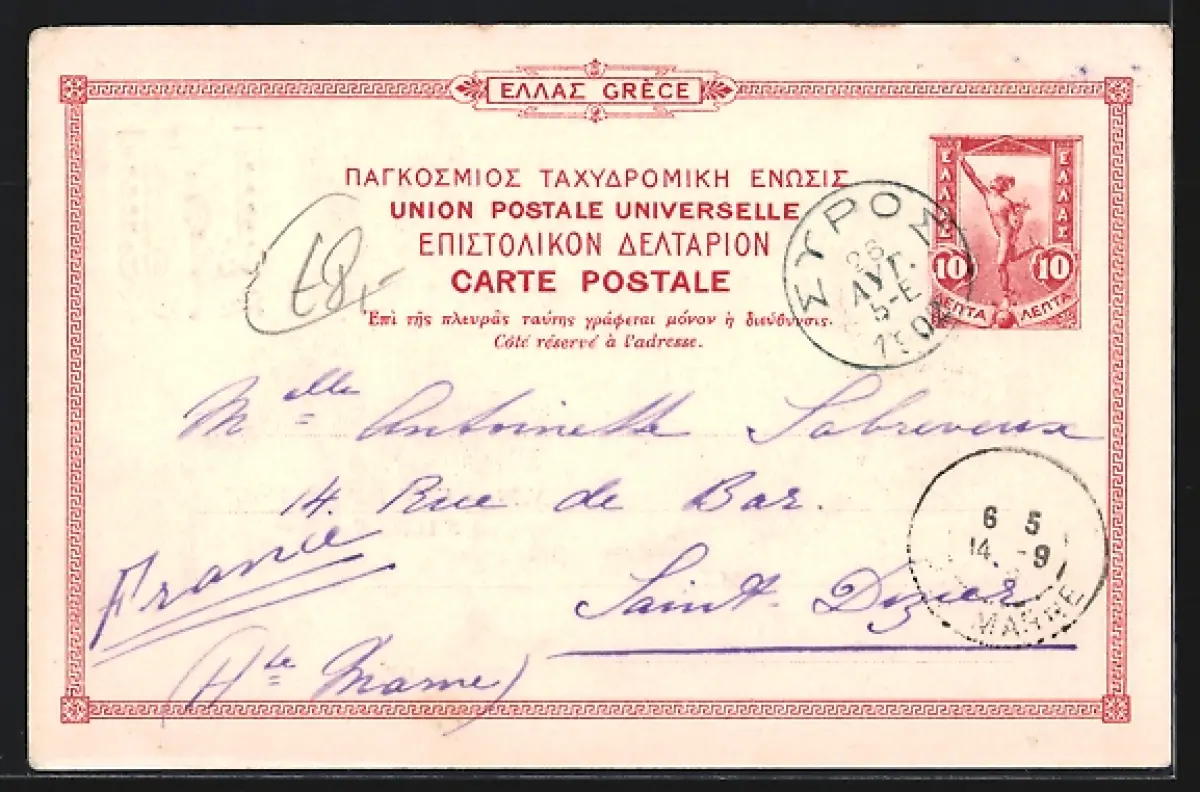 ΕΛΛΑΣ GRÈCE
ΠΑΓΚΟΣΜΙΟΣ ΤΑΧΥΔΡΟΜΙΚΗ ΕΝΩΣΙΣ
UNION POSTALE UNIVERSELLE
ΕΠΙΣΤΟΛΙΚΟΝ ΔΕΛΤΑΡΙΟΝ
CARTE POSTALE
Ἐπὶ τῆς πλευρᾶς ταύτης γράφεται μόνον ἡ διεύθυνσις.
Côté réservé à l'adresse.
ΕΛΛΑΣ ΕΛΛΑΣ
10 10
ΛΕΠΤΑ ΛΕΠΤΑ
ΣΥΡΟΣ
26
ΑΥΓ.
5-Ε
Melle Antoinette Labreveux
14. Rue de Bar.
Saint-Dizier
France
(Hte Marne)
6 5
14 -9
MARNE